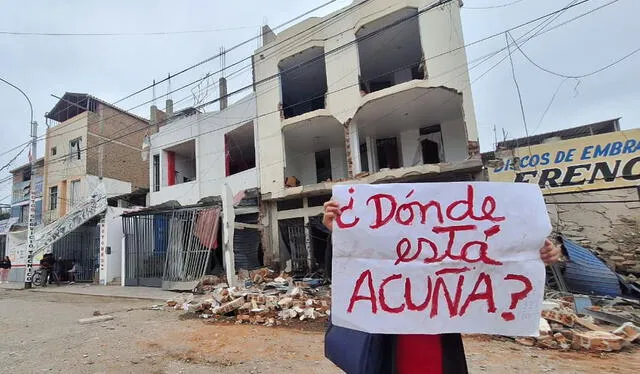 ¿Dónde
está
ACUÑA?
DISCOS DE EMBRA
FRENO